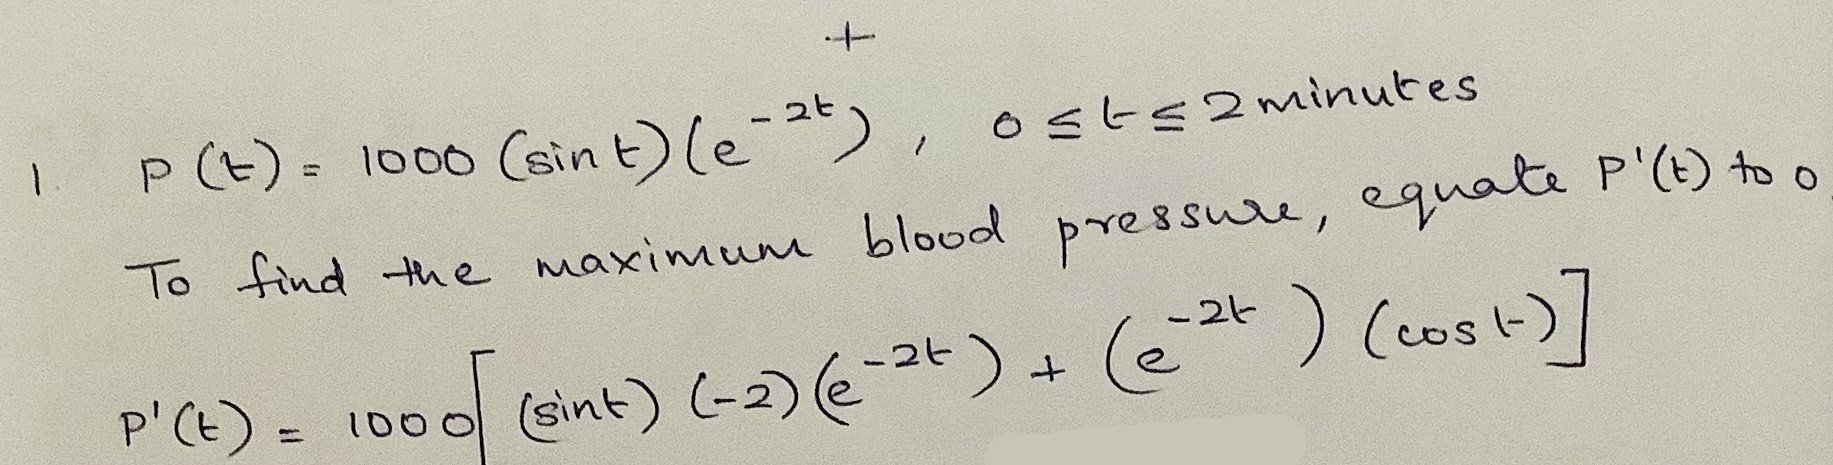 +
1. P(t) = 1000 (sin t)(e^{-2t}), 0 ≤ t ≤ 2 minutes
To find the maximum blood pressure, equate P'(t) to 0.
P'(t) = 1000[(sin t)(-2)(e^{-2t}) + (e^{-2t})(cos t)]